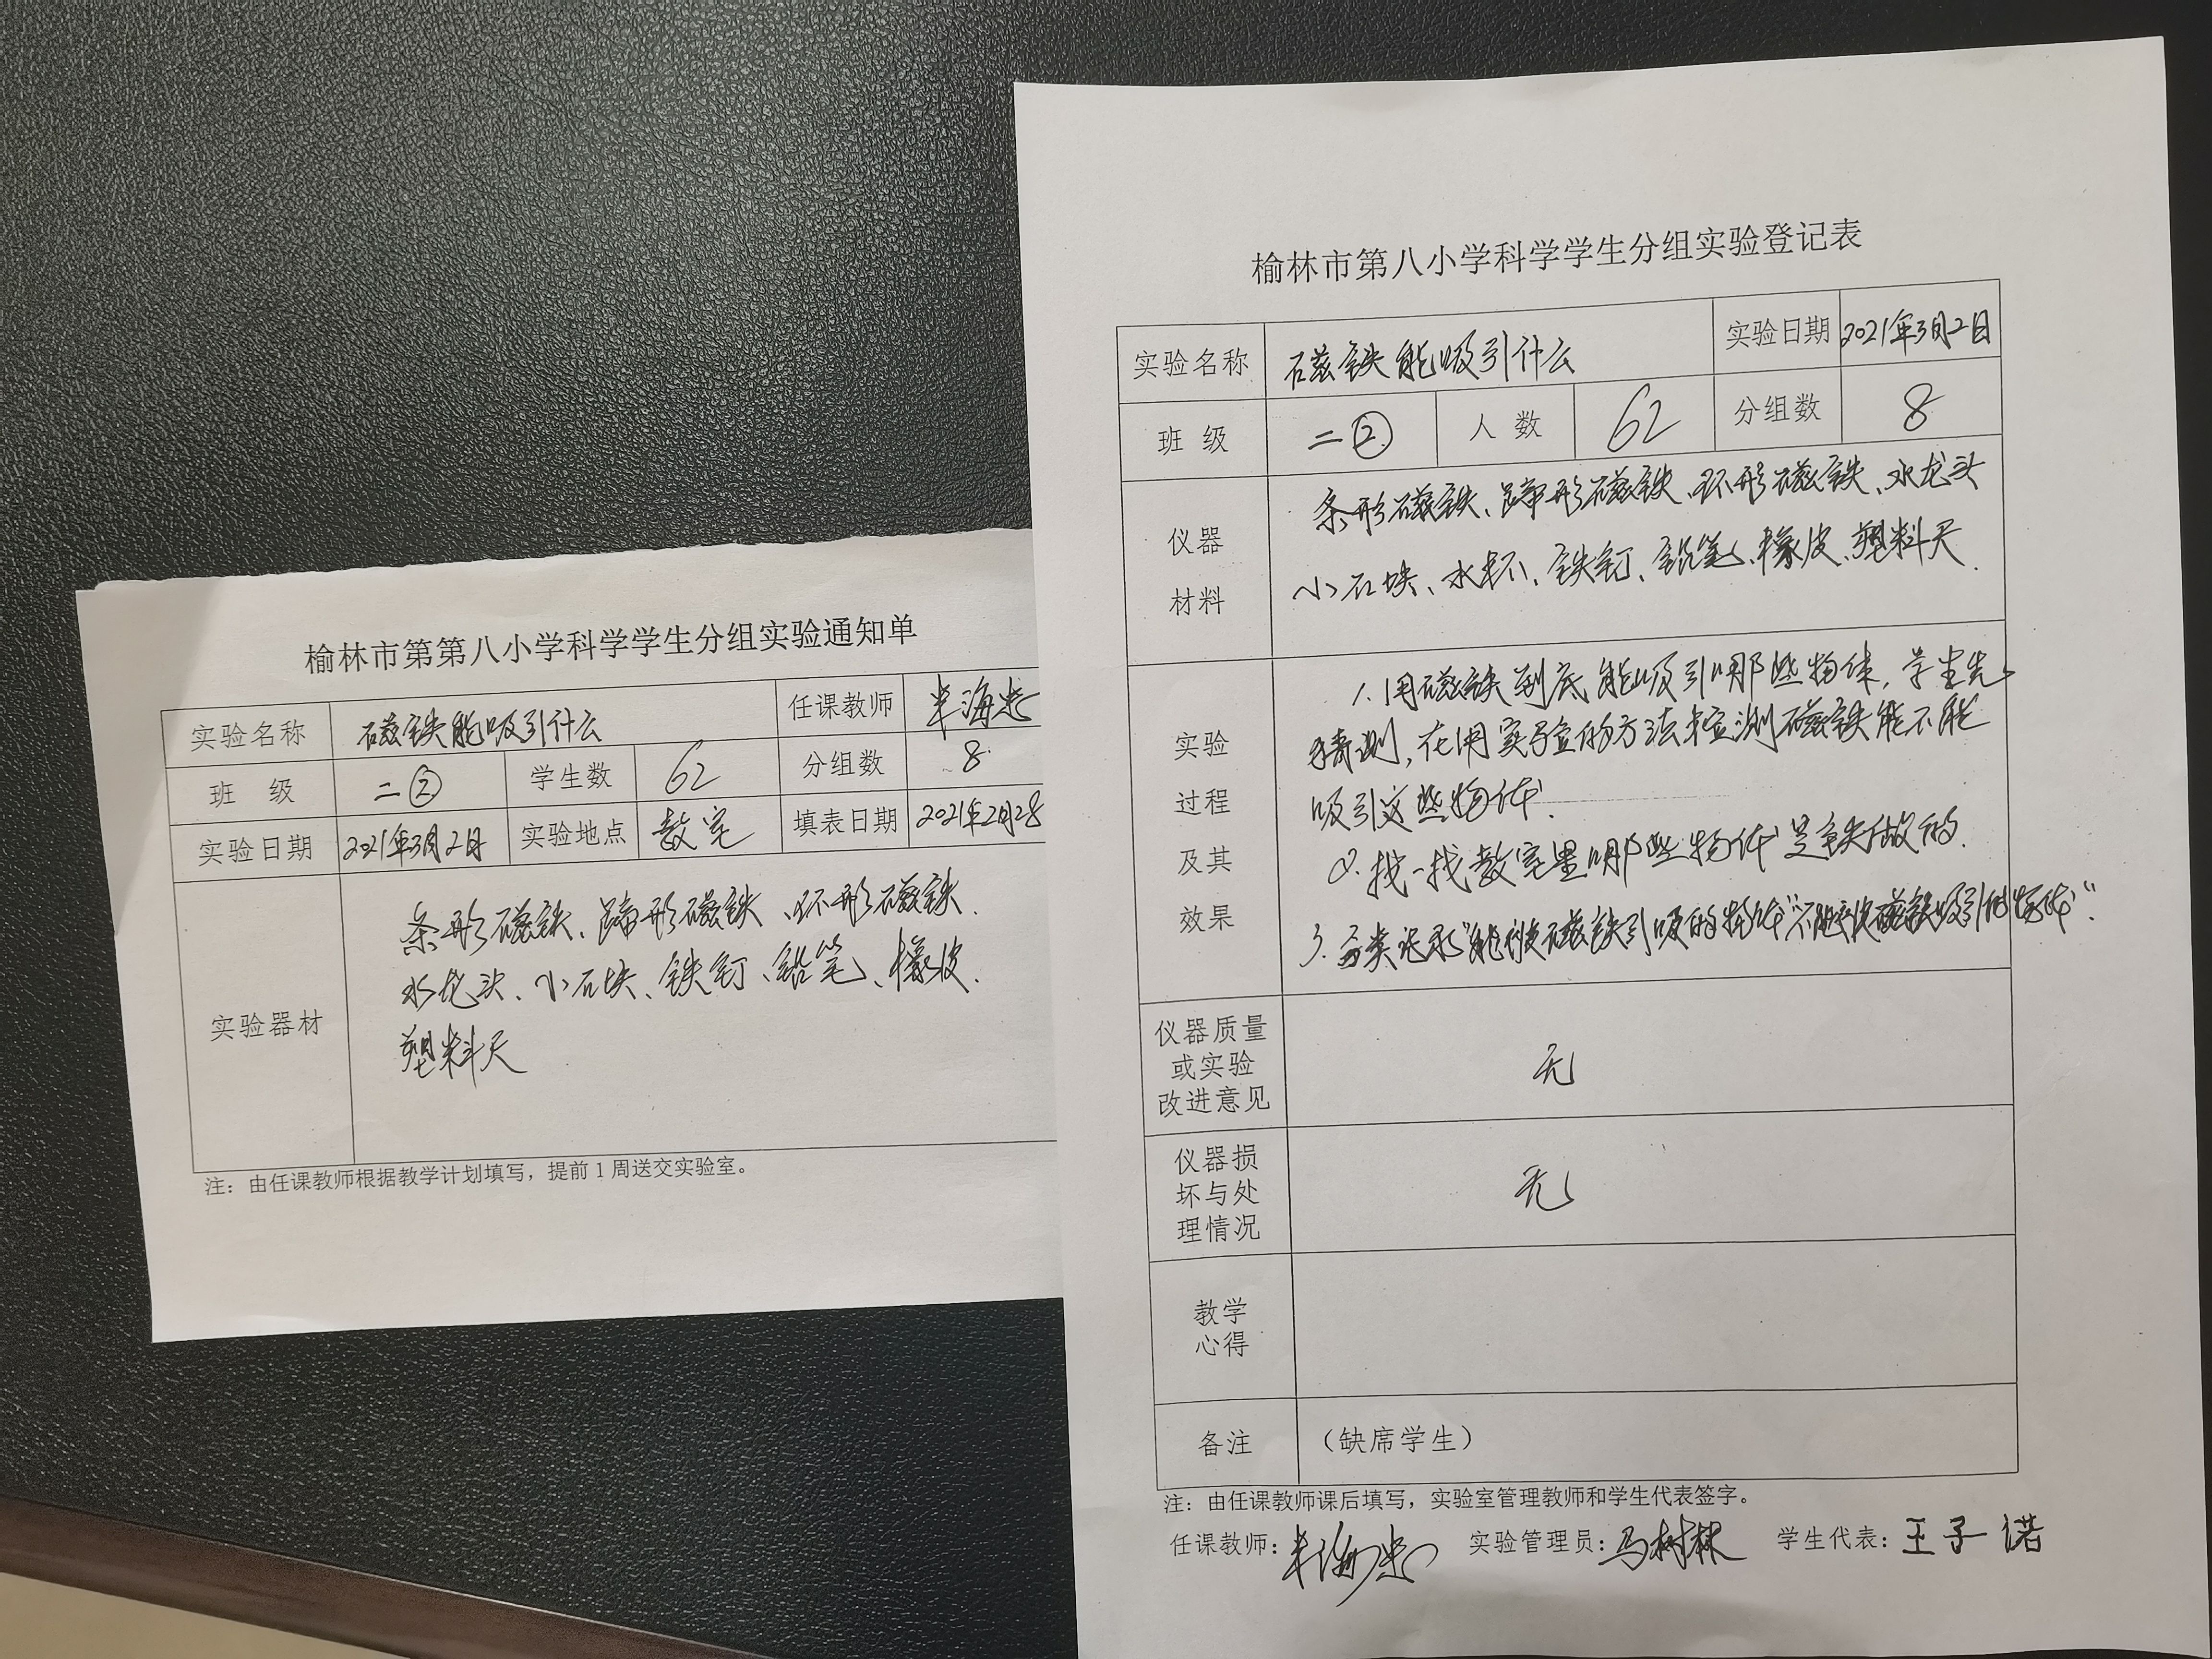 榆林市第第八小学科学学生分组实验通知单
实验名称 磁铁能吸引什么 任课教师 海忠
班 级 二② 学生数 62 分组数 8
实验日期 2021年3月2日 实验地点 教室 填表日期 2021年2月28
实验器材
条形磁铁、蹄形磁铁、环形磁铁、
水龙头、小石块、铁钉、铅笔、橡皮、
塑料尺
注：由任课教师根据教学计划填写，提前1周送交实验室。
榆林市第八小学科学学生分组实验登记表
实验名称 磁铁能吸引什么 实验日期 2021年3月2日
班 级 二② 人 数 62 分组数 8
仪器
材料
条形磁铁、蹄形磁铁、环形磁铁、水龙头
小石块、水杯、铁钉、铅笔、橡皮、塑料尺.
实验
过程
及其
效果
1.用磁铁到底能吸引哪些物体，学生先
猜测，在用实验的方法检测磁铁能不能
吸引这些物体.
2.找一找教室里哪些物体是铁做的.
3.分类记录“能被磁铁引吸的物体”“不能被磁铁吸引的物体”.
仪器质量
或实验
改进意见
无
仪器损
坏与处
理情况
无
教学
心得
备注 （缺席学生）
注：由任课教师课后填写，实验室管理教师和学生代表签字。
任课教师：海忠 实验管理员：马树林 学生代表：王子诺